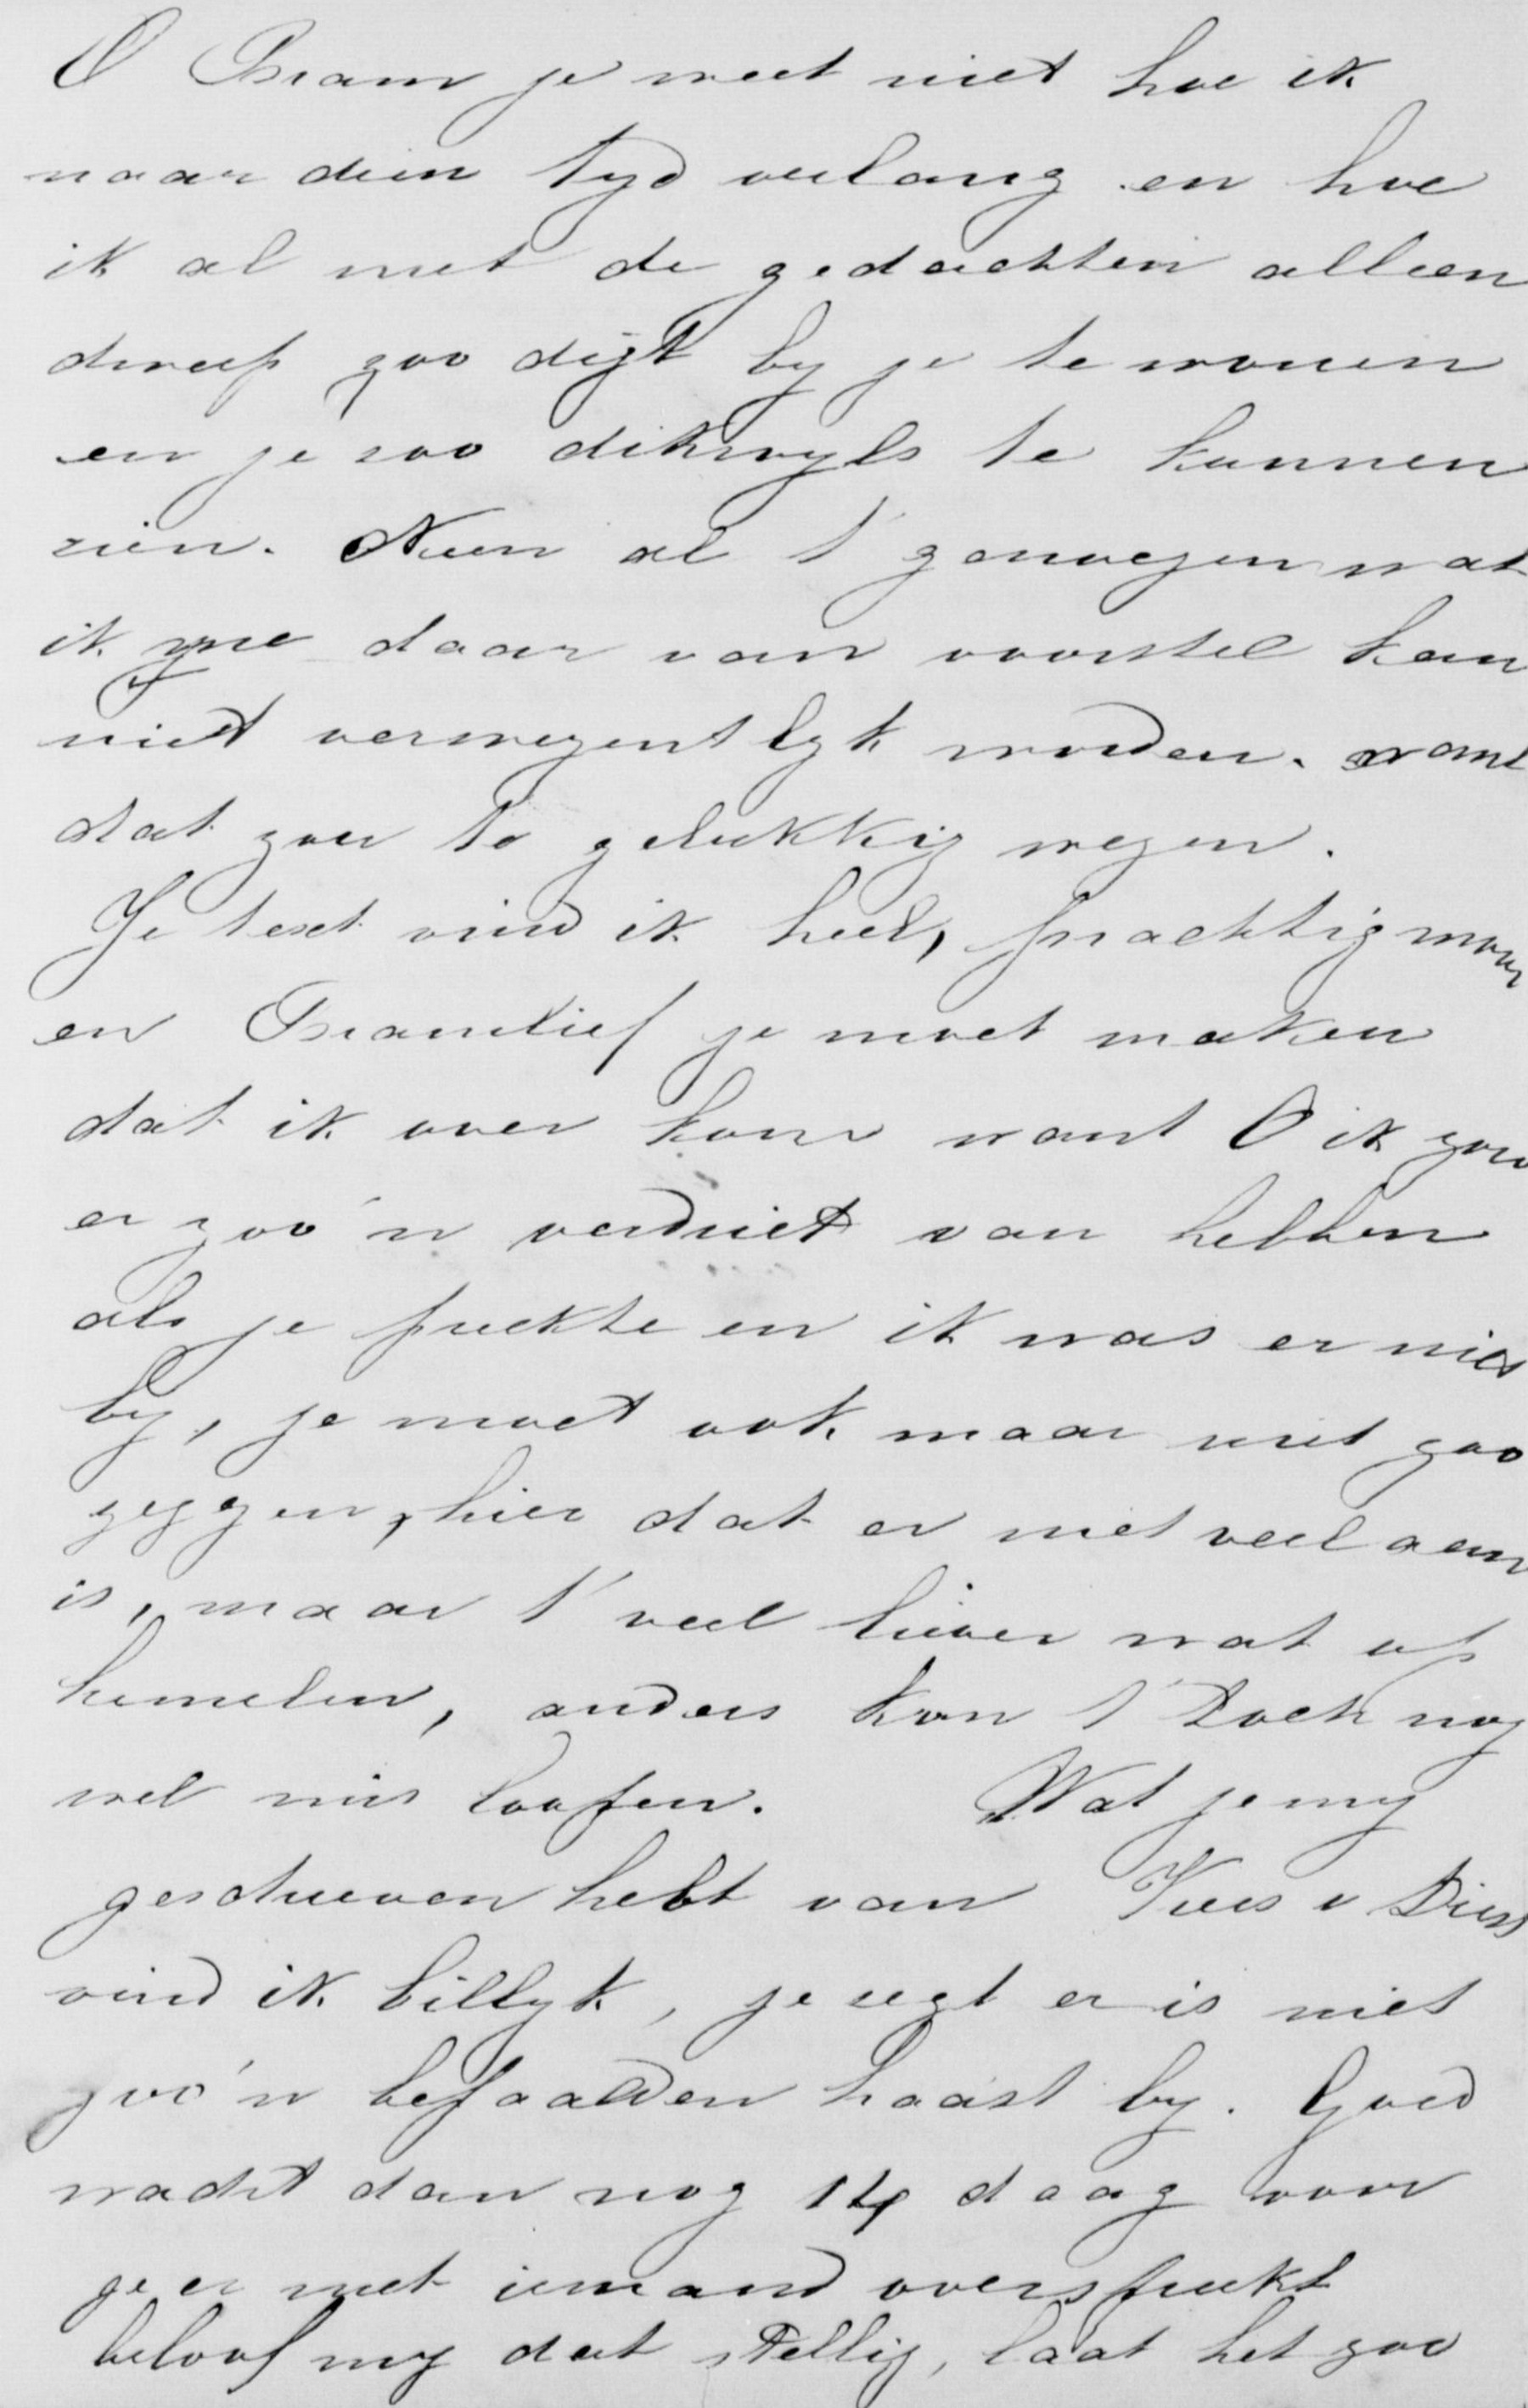 O Bram je weet niet hoe ik
naar dien tyd verlang en hoe
ik al met de gedachten alleen
dweep zoo digt by je te wonen
en je zoo dikwyls te kunnen
zien. Neen al t' genoegen wat
ik me daar van voorstel kan
niet verwezentlyk worden. want
dat zou te gelukkig wezen.
Je text vind ik heel, prachtig maar
en Bramlief je moet maken
dat ik over kom want O ik zou
er zoo'n verdriet van hebben
als je preekte en ik was er niet
by, je moet ook maar niet zoo
zeggen, hier dat er niet veel aan
is, maar t' veel liever wat op
hemelen, anders kon t' toch nog
wel mis loopen. Wat je my
geschreven hebt van Kees v Diest
vind ik billyk, je zegt er is niet
zoo'n bepaalden haast by. Goed
wacht dan nog 14 daag voor
je er met iemand overspreekt
beloof my dat stellig, laat het zoo